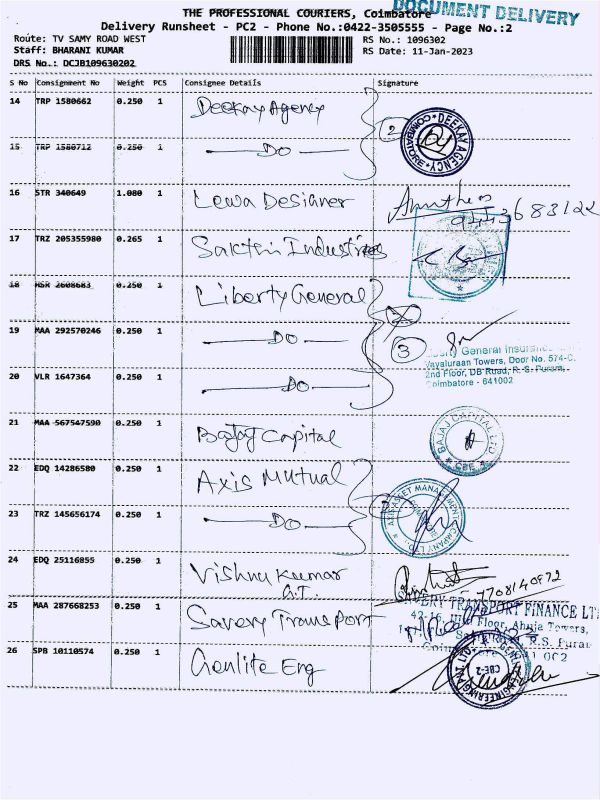 THE PROFESSIONAL COURIERS, Coimbatore
DOCUMENT DELIVERY
Delivery Runsheet - PC2 - Phone No.:0422-3505555 - Page No.:2
Route: TV SAMY ROAD WEST
RS No.: 1096302
Staff: BHARANI KUMAR
RS Date: 11-Jan-2023
DRS No.: DCJB109630202
S No Consignment No Weight PCS Consignee Details Signature
14 TRP 1580662 0.250 1 Deekay Agency
2
DEEKAY AGENCY COIMBATORE
15 TRP 1580712 0.250 1 DO
16 STR 340649 1.080 1 Lewa Designer
17 TRZ 205355980 0.265 1 Sakthi Industries
18 HSR 2608683 0.250 1 Liberty General
19 MAA 292570246 0.250 1 DO
3
Liberty General Insurance
Vayaluraan Towers, Door No. 574-C,
2nd Floor, DB Road, R. S. Puram,
Coimbatore - 641002
20 VLR 1647364 0.250 1 DO
21 MAA 567547590 0.250 1 Bajaj Capital
BAJAJ CAPITAL LTD CBE
22 EDQ 14286580 0.250 1 Axis Mutual
AXIS ASSET MANAGEMENT COMPANY LTD
23 TRZ 145656174 0.250 1 DO
24 EDQ 25116855 0.250 1 Vishnu Kumar
G.T.
7708140972
25 MAA 287668253 0.250 1 Savery Transport
SAVERY TRANSPORT FINANCE LTD
Floor, Ahuja Towers,
R.S. Puram
26 SPB 10110574 0.250 1 Genlite Eng
CBE-2